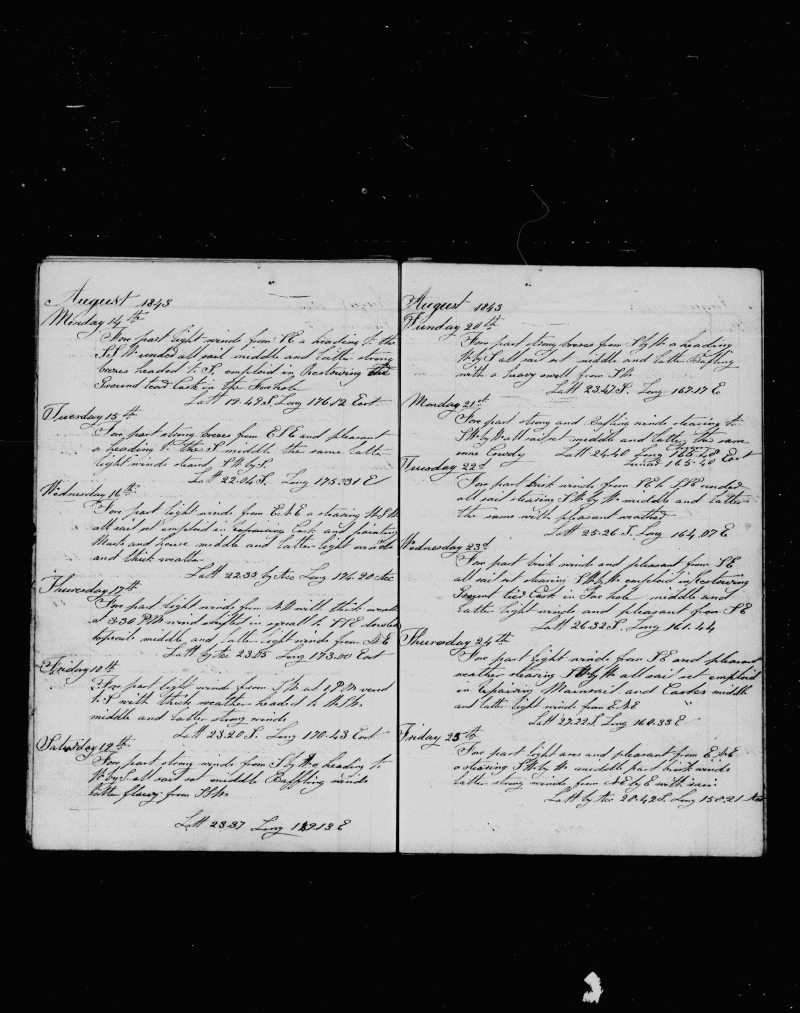 August 1843
Monday 14th
Fore part light winds from SE a heading to the
SSW unded all sail middle and latter strong
breses headed to S emploid in Restowing the
Ground tead Cask in the Forehole
Latt 19.49 S Long 176.12 East
Tuesday 15th
Fore part strong breses from ESE and pleasant
a heading to the S middle the same latter
light winds steard SW by S
Latt 22.04 S. Long 175.31 E
Wednesday 16th
Fore part light winds from ENE a stearing WSW
all sail set emploid in repairing Cask and painting
Masts and house middle and latter light winds
and thick weather
Latt 22.33 by Acc Long 174.20 Acc
Thuresday 17th
Fore part light winds from NW with thick weath
at 3.30 PM wind shifted in squall to SSE
topsails middle and latter light winds from NE
Latt by Acc 23.05 Long 173.00 East
Friday 18th
Fore part light winds from SW at 1 PM wend
to S with thick weather headed to WSW
middle and latter strong winds
Latt 23.20 S. Long 170.43 East
Saturday 19th
Fore part strong winds from S by W a heading to
W by S all sail set middle Baffling winds
latter flawy from SSW
Latt 23.37 Long 169.13 E
August 1843
Sunday 20th
Fore part strong breses from S by W a heading
W by S all sail set middle and latter Bafling
with a heavy swell from SW
Latt 23.47 S. Long 167.17 E
Monday 21st
Fore part strong and Bafling winds stearing to
SW by W all sail set middle and latter the same
some Cowdy Latt 24.40 Long 165.48 East
Lunar 165.40
Tuesday 22d
Fore part brisk winds from SE to SSE unded
all sail stearing SW by W middle and latter
the same with pleasant weather
Latt 25.26 S. Long 164.07 E
Wednesday 23d
Fore part brisk winds and pleasant from SE
all sail set stearing SW by W emploid in Restowing
Ground tied Cask in Fore hole middle and
latter light winds and pleasant from SE
Latt 26.32 S. Long 161.44
Thuresday 24th
Fore part light winds from SE and pleasant
weather stearing SW by W all sail set emploid
in repairing Mainsail and Casks middle
and latter light winds from ENE
Latt 27.22 S Long 160.33 E
Friday 25th
Fore part light ares and pleasant from ENE
a stearing SW by W middle part brisk winds
latter strong winds from NE by E with rain
Latt by Acc 28.42 S. Long 158.21 Acc